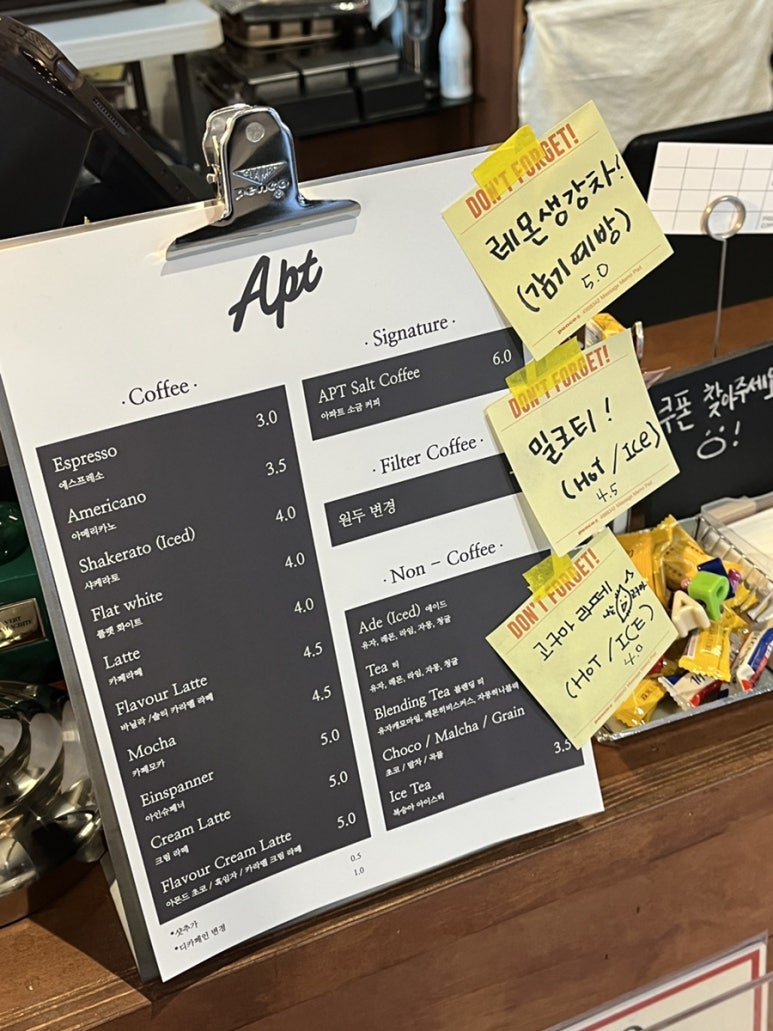 penco
Apt
· Coffee ·
Espresso 3.0
에스프레소
Americano 3.5
아메리카노
Shakerato (Iced) 4.0
샤케라토
Flat white 4.0
플랫 화이트
Latte 4.0
카페라떼
Flavour Latte 4.5
바닐라 /솔티 카라멜 라떼
Mocha 4.5
카페모카
Einspanner 5.0
아인슈페너
Cream Latte 5.0
크림 라떼
Flavour Cream Latte 5.0
아몬드 초코 / 흑임자 / 카라멜 크림 라떼
*샷추가 0.5
*디카페인 변경 1.0
· Signature ·
APT Salt Coffee 6.0
아파트 소금 커피
· Filter Coffee ·
원두 변경
· Non - Coffee ·
Ade (Iced) 에이드
유자, 레몬, 라임, 자몽, 청귤
Tea 티
유자, 레몬, 라임, 자몽, 청귤
Blending Tea 블렌딩 티
유자캐모마일, 레몬히비스커스, 자몽허니블랙
Choco / Malcha / Grain
초코 / 말차 / 곡물
Ice Tea 3.5
복숭아 아이스티
DON'T FORGET!
레몬생강차!
(감기 예방)
5.0
penco
Message Memo Pad
DON'T FORGET!
밀크티!
(HOT / ICE)
4.5
DON'T FORGET!
고구마 라떼
(HOT / ICE)
4.0
쿠폰 찾아주세요
!